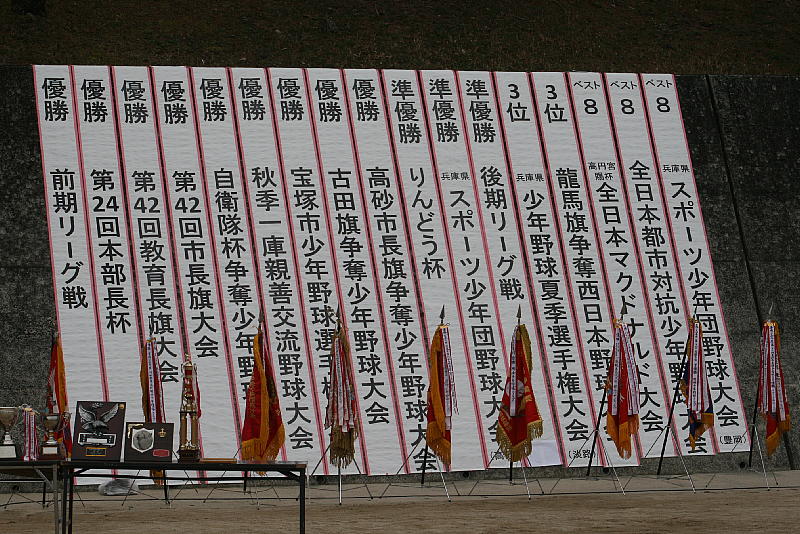 優勝 前期リーグ戦
優勝 第24回本部長杯
優勝 第42回教育長旗大会
優勝 第42回市長旗大会
優勝 自衛隊杯争奪少年野
優勝 秋季一庫親善交流野球大会
優勝 宝塚市少年野球選
優勝 古田旗争奪少年野球大会
優勝 高砂市長旗争奪少年野球大会
準優勝 りんどう杯
準優勝 兵庫県スポーツ少年団野球大
準優勝 後期リーグ戦
3位 兵庫県少年野球夏季選手権大会
3位 龍馬旗争奪西日本野球大会 (淡路)
ベスト8 高円宮賜杯全日本マクドナルド大会
ベスト8 全日本都市対抗少年野球大会
ベスト8 兵庫県スポーツ少年団野球大会 (豊岡)